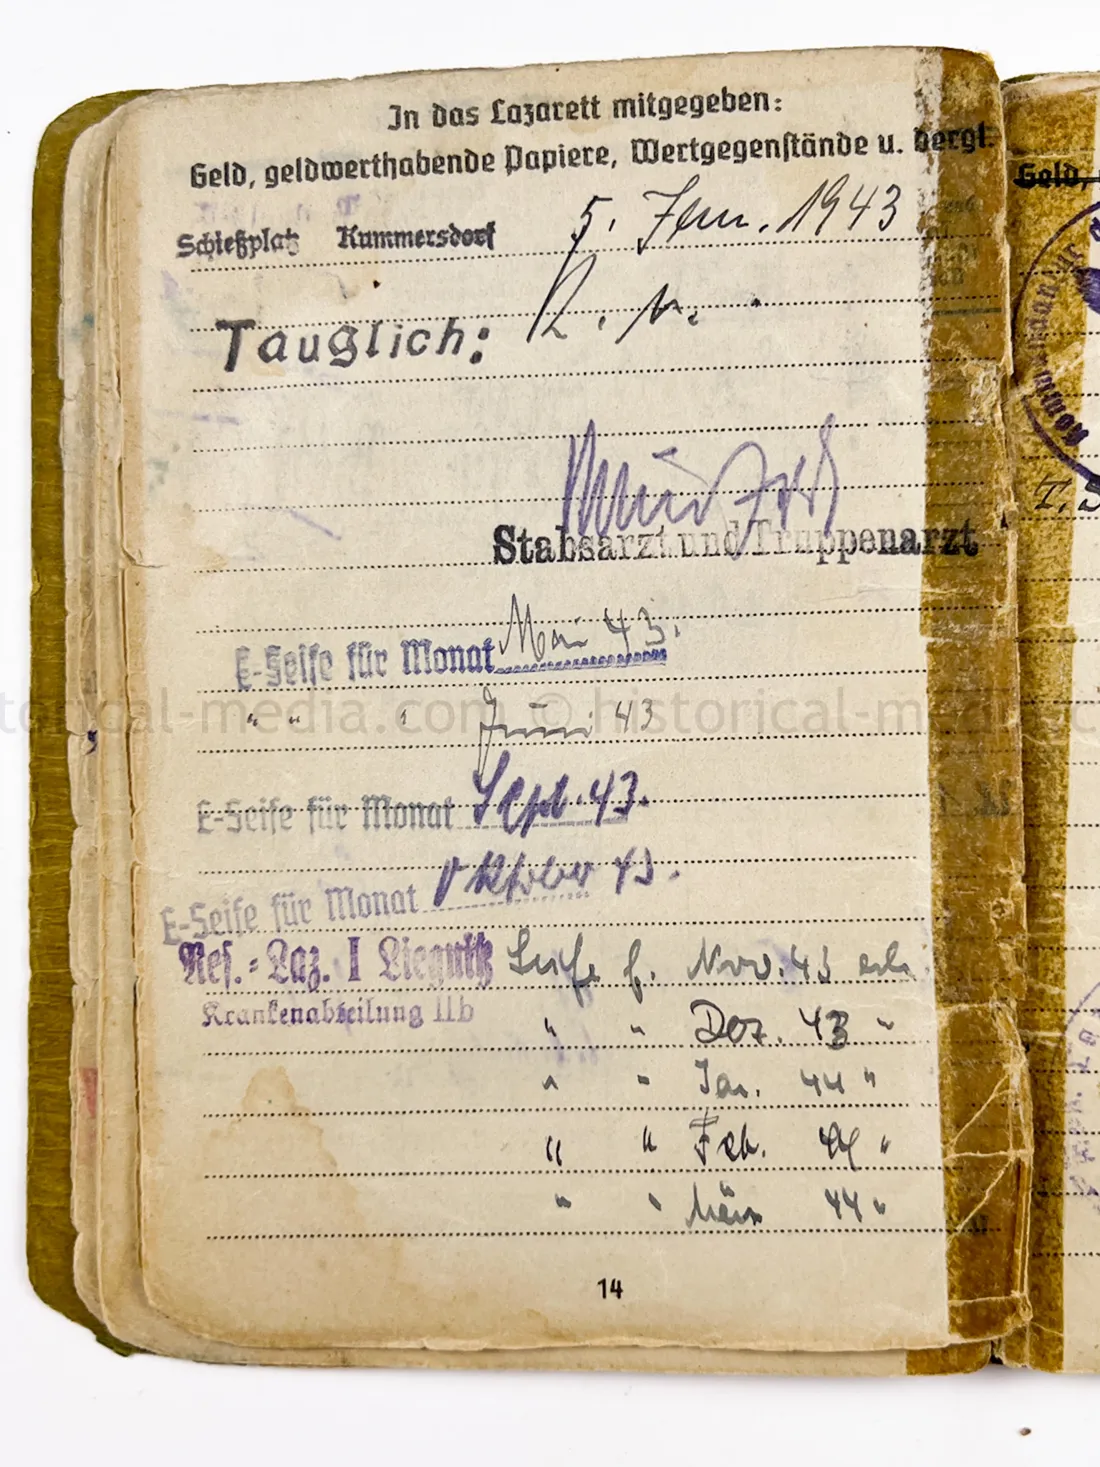 In das Lazarett mitgegeben:
Geld, geldwerthabende Papiere, Wertgegenstände u. dergl.
Schießplatz Kummersdorf 5. Jan. 1943
Tauglich: K. v.
Stabsarzt und Truppenarzt
E-Seife für Monat Mai 43.
" " " Juni 43
torical-media.com © historical-m
E-Seife für Monat Sept. 43.
E-Seife für Monat Oktober 43.
Res.-Laz. I Liegnitz Seife f. Nov. 43 erh.
Krankenabteilung IIb
" " Dez. 43 "
" " Jan. 44 "
" " Feb. 44 "
" " März 44 "
14
Geld,
Kommandantur
T. S